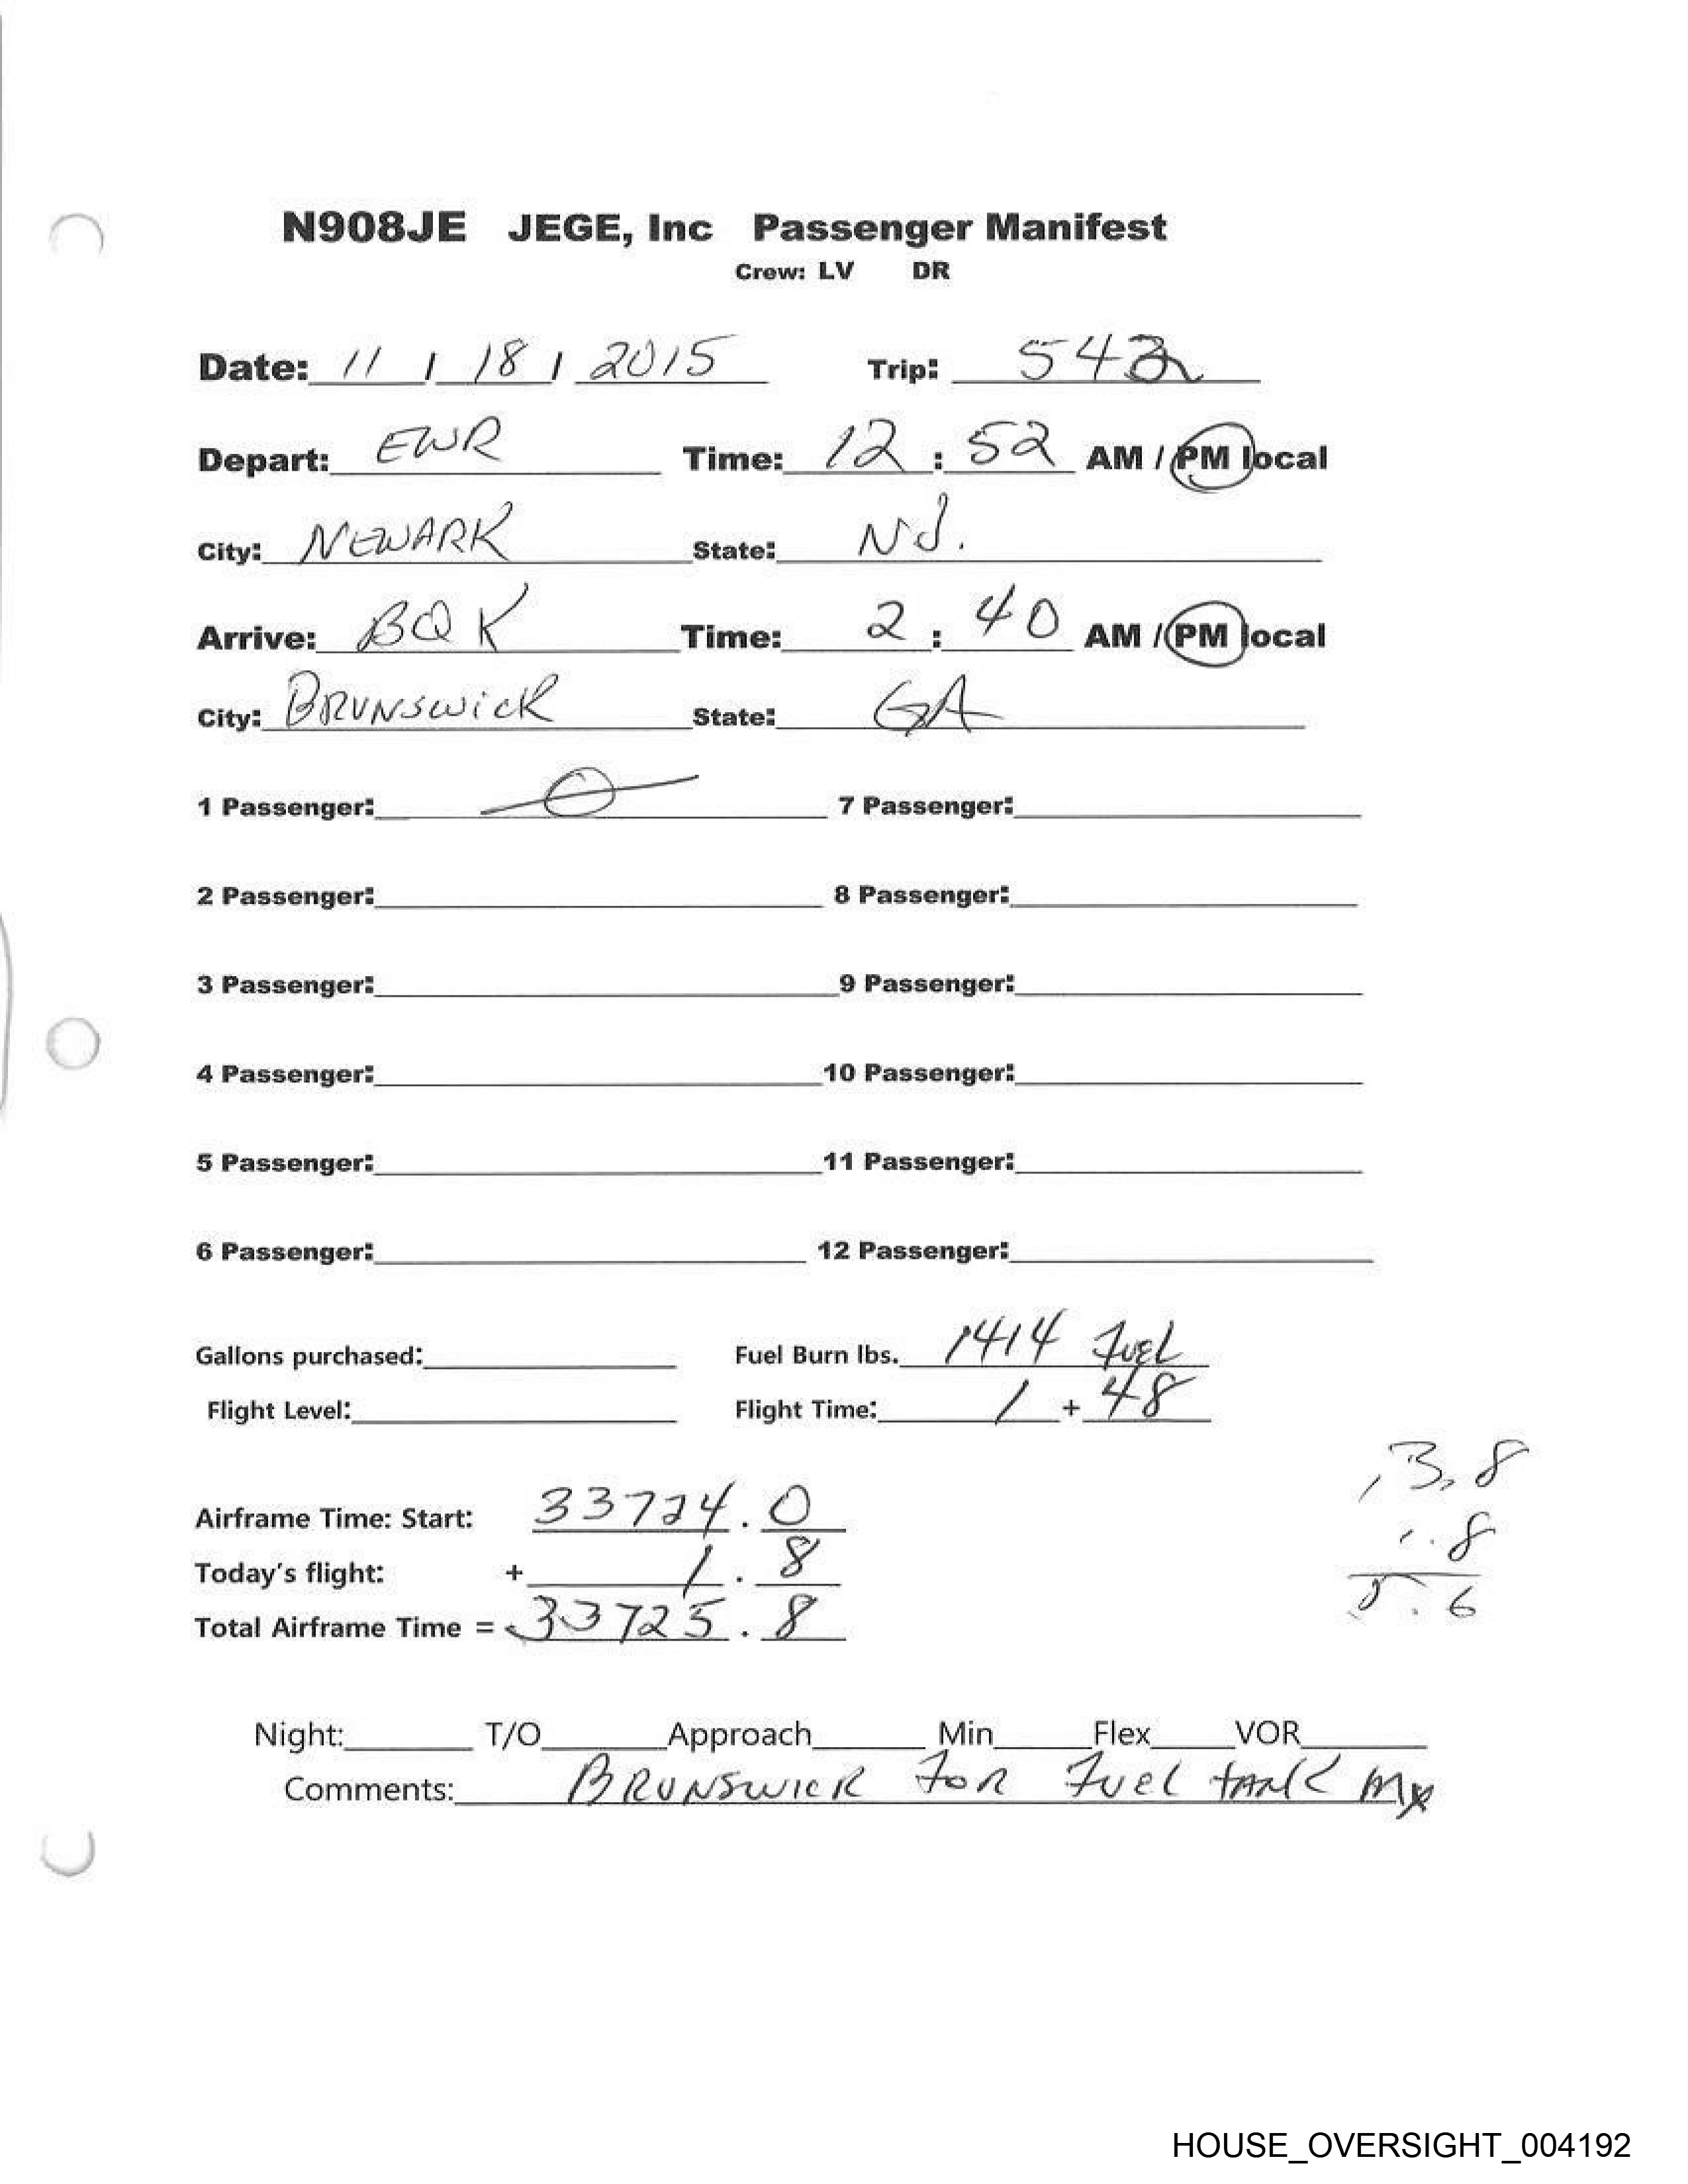 N908JE JEGE, Inc Passenger Manifest
Crew: LV DR
Date: 11 / 18 / 2015 Trip: 542
Depart: EWR Time: 12 : 52 AM / PM local
City: NEWARK State: NJ.
Arrive: BQK Time: 2 : 40 AM / PM local
City: BRUNSWICK State: GA
1 Passenger: 0 7 Passenger:
2 Passenger: 8 Passenger:
3 Passenger: 9 Passenger:
4 Passenger: 10 Passenger:
5 Passenger: 11 Passenger:
6 Passenger: 12 Passenger:
Gallons purchased: Fuel Burn lbs. 1414 Fuel
Flight Level: Flight Time: 1 + 48
3.8
Airframe Time: Start: 33724.0
.8
Today's flight: + 1.8
.6
Total Airframe Time = 33725.8
Night: T/O Approach Min Flex VOR
Comments: BRUNSWICK FOR FUEL TANK MX
HOUSE_OVERSIGHT_004192